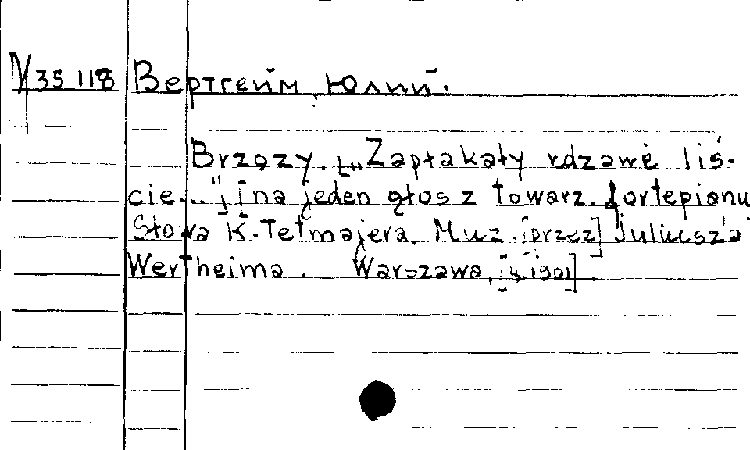 V 35 118 Вертгейм, Юлий.
Brzozy. [„Zapłakały rdzawe liś-
cie..."] [na jeden głos z towarz. fortepianu
Słowa K. Tetmajera. Muz. [przez] Juliusza
Wertheima. Warszawa,